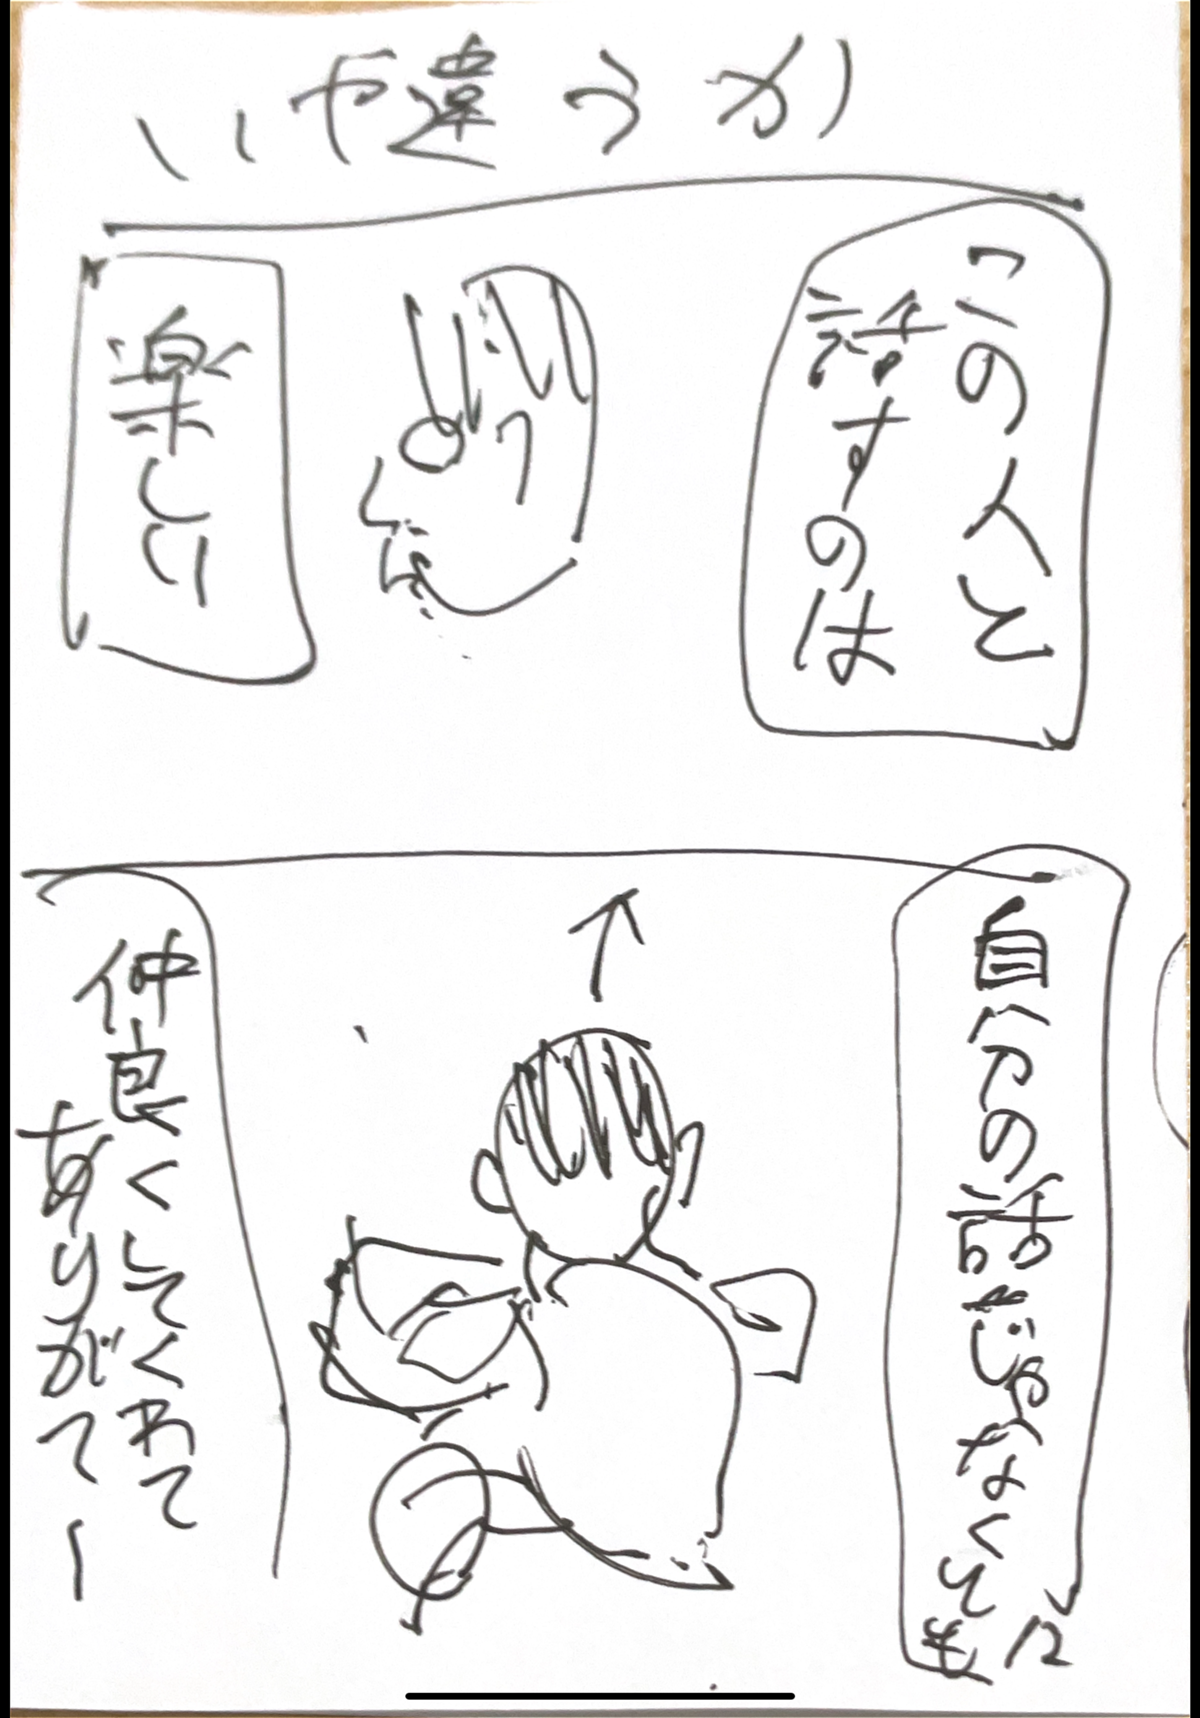 いや違うか
この人と
話すのは
楽しい
自分の話じゃなくても
仲良くしてくれて
ありがてー